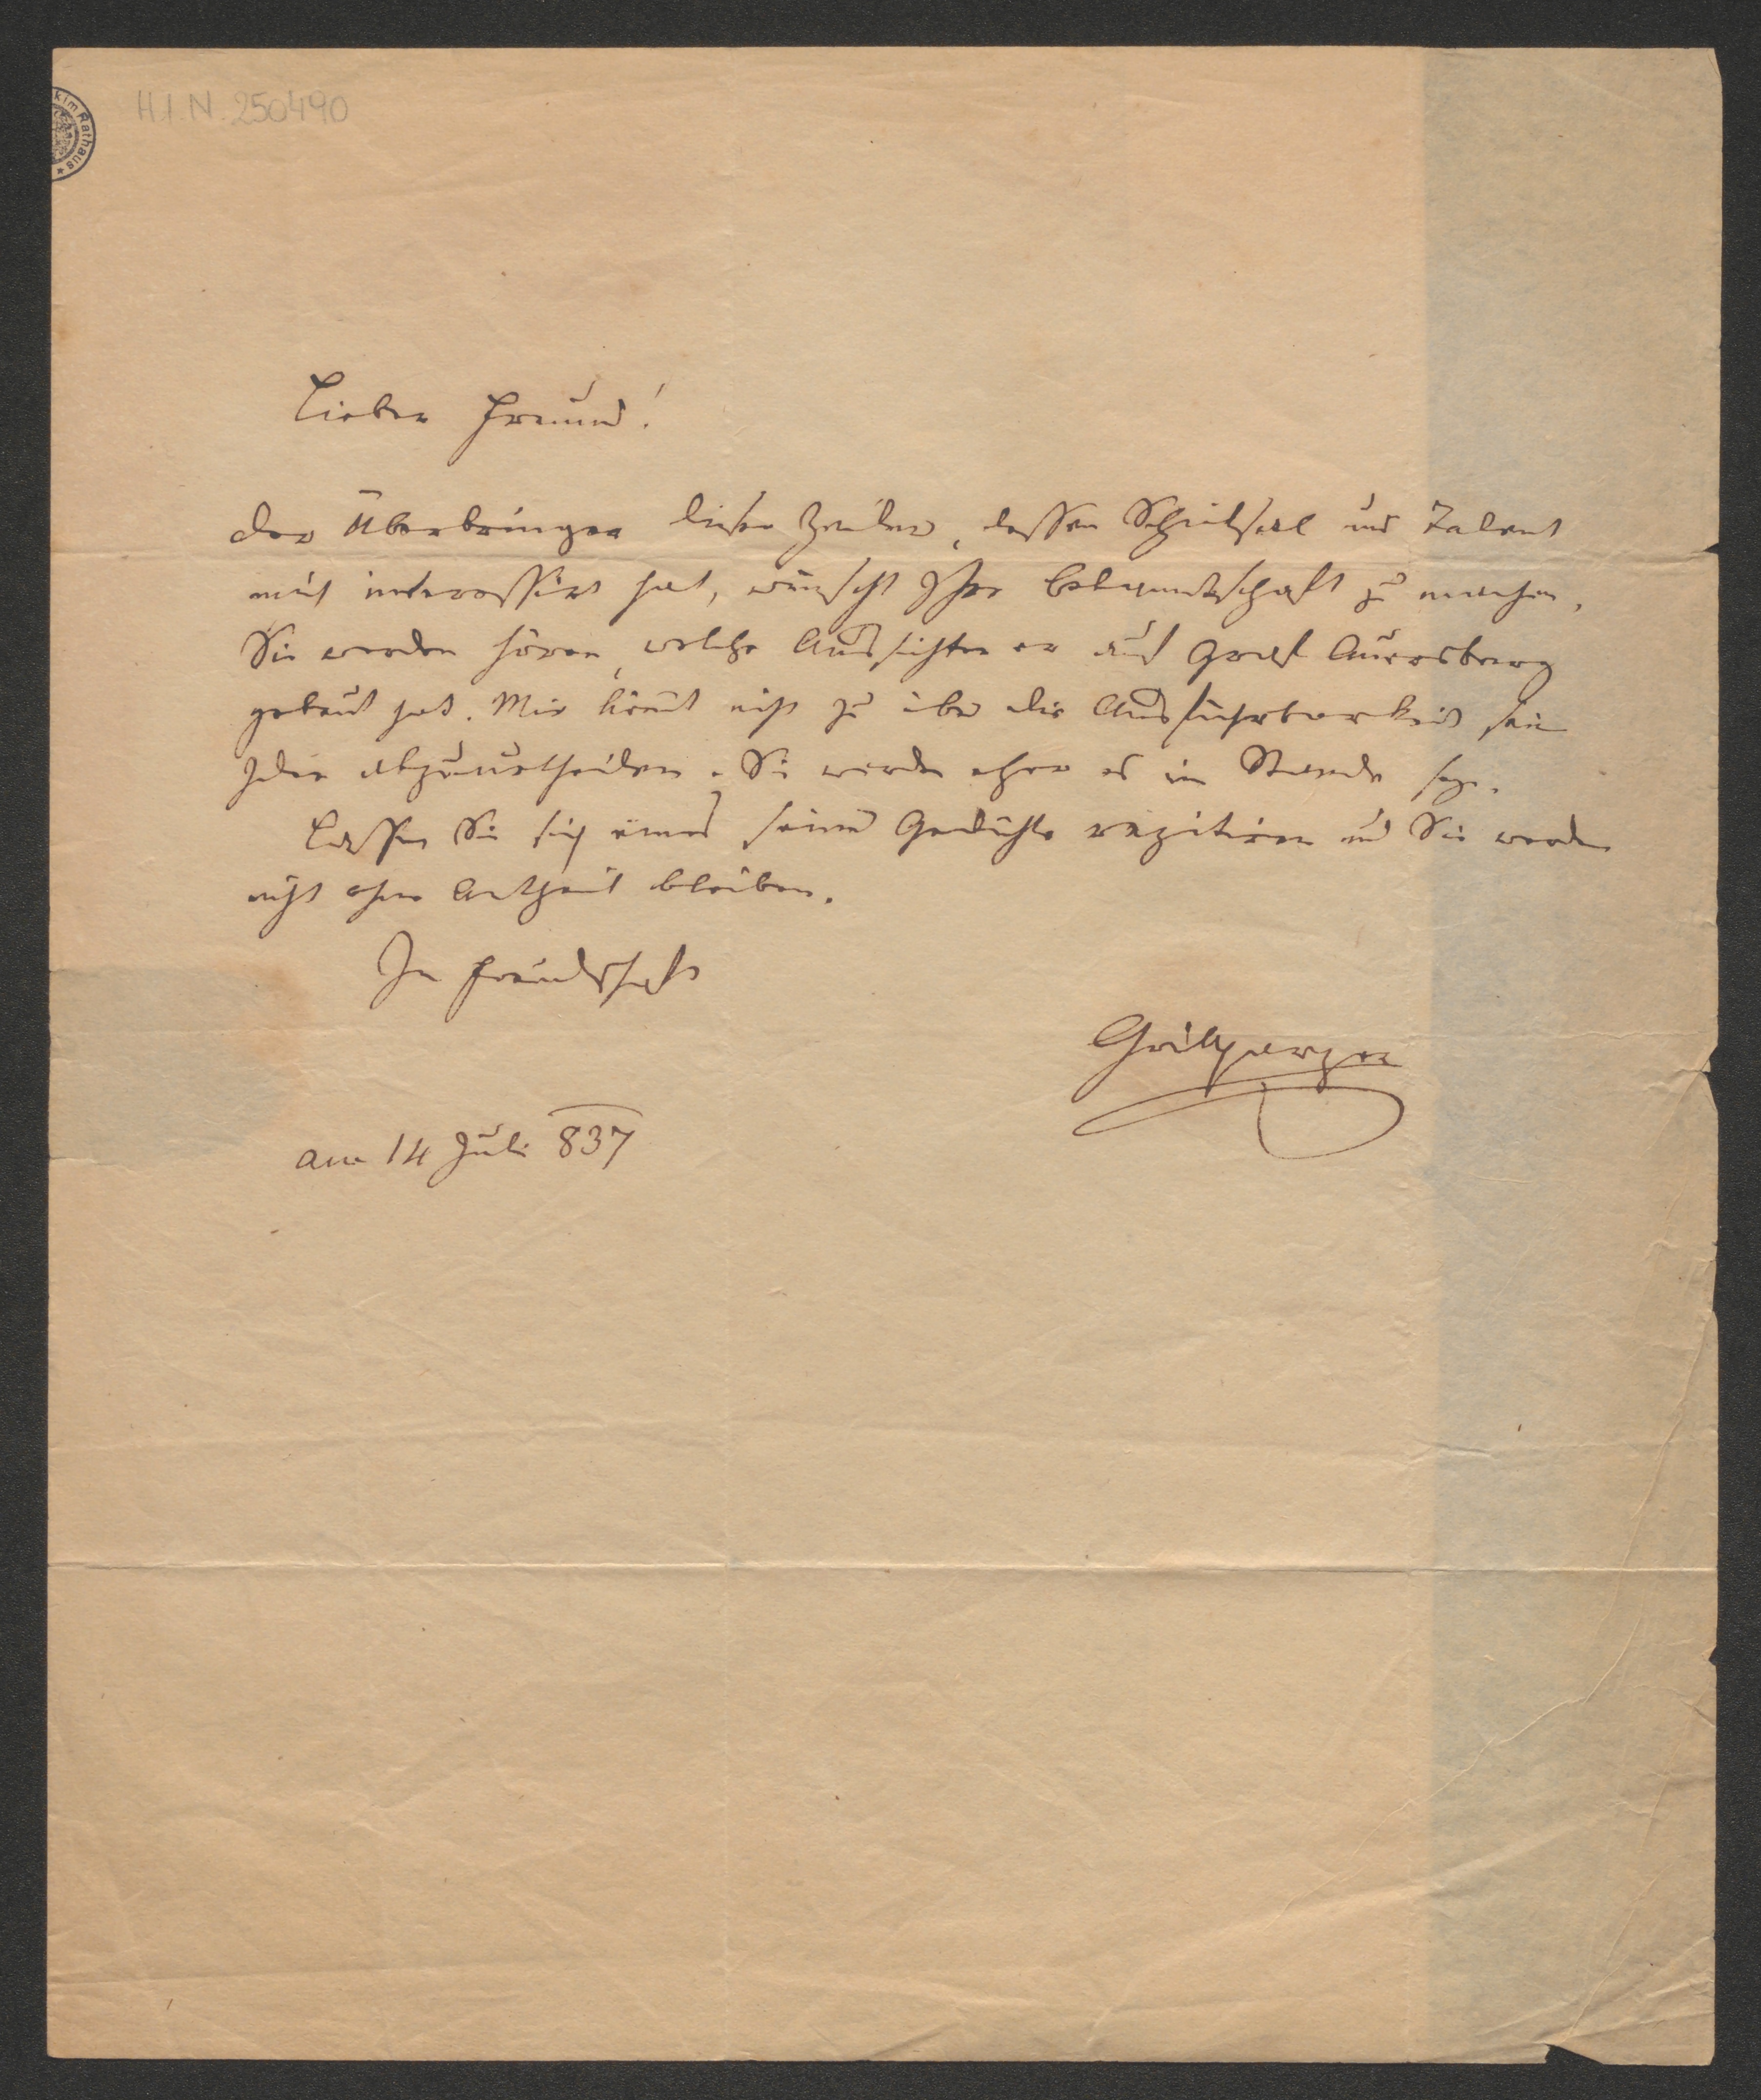 H.I.N. 250490
k im Rathaus *
Lieber Freund!
Der Überbringer dieser Zeilen, dessen Schicksal und Talent
mich interessirt hat, wünscht Ihre Bekanntschaft zu machen.
Sie werden hören, welche Aussichten er auf Graf Auersberg
gebaut hat. Mir kömmt nicht zu über die Ausführbarkeit
abzuurtheilen. Sie werden eher es im Stande seyn.
Lassen Sie sich eines seiner Gedichte rezitiren und Sie werden
nicht ohne Antheil bleiben.
In Freundschaft
Grillparzer
am 14 Juli 837